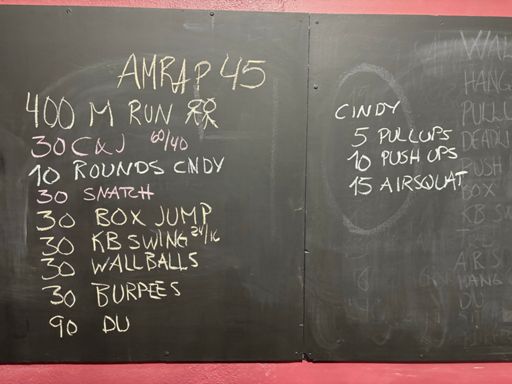 AMRAP 45
400 M RUN
30 C&J 60/40
10 ROUNDS CNDY
30 SNATCH
30 BOX JUMP
30 KB SWING 24/16
30 WALLBALLS
30 BURPEES
90 DU
CINDY
5 PULLUPS
10 PUSH UPS
15 AIRSQUAT
WAL
HANG
PULLU
DEADLI
PUSH
BOX
KB SW
ABS
HANG
DU